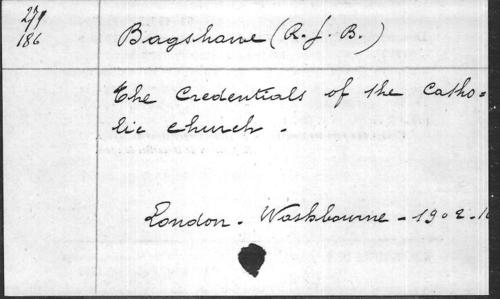 279
186
Bagshawe (R. J. B.)
The Credentials of the Catho=
lic church -
London - Washbourne - 1902 - 16